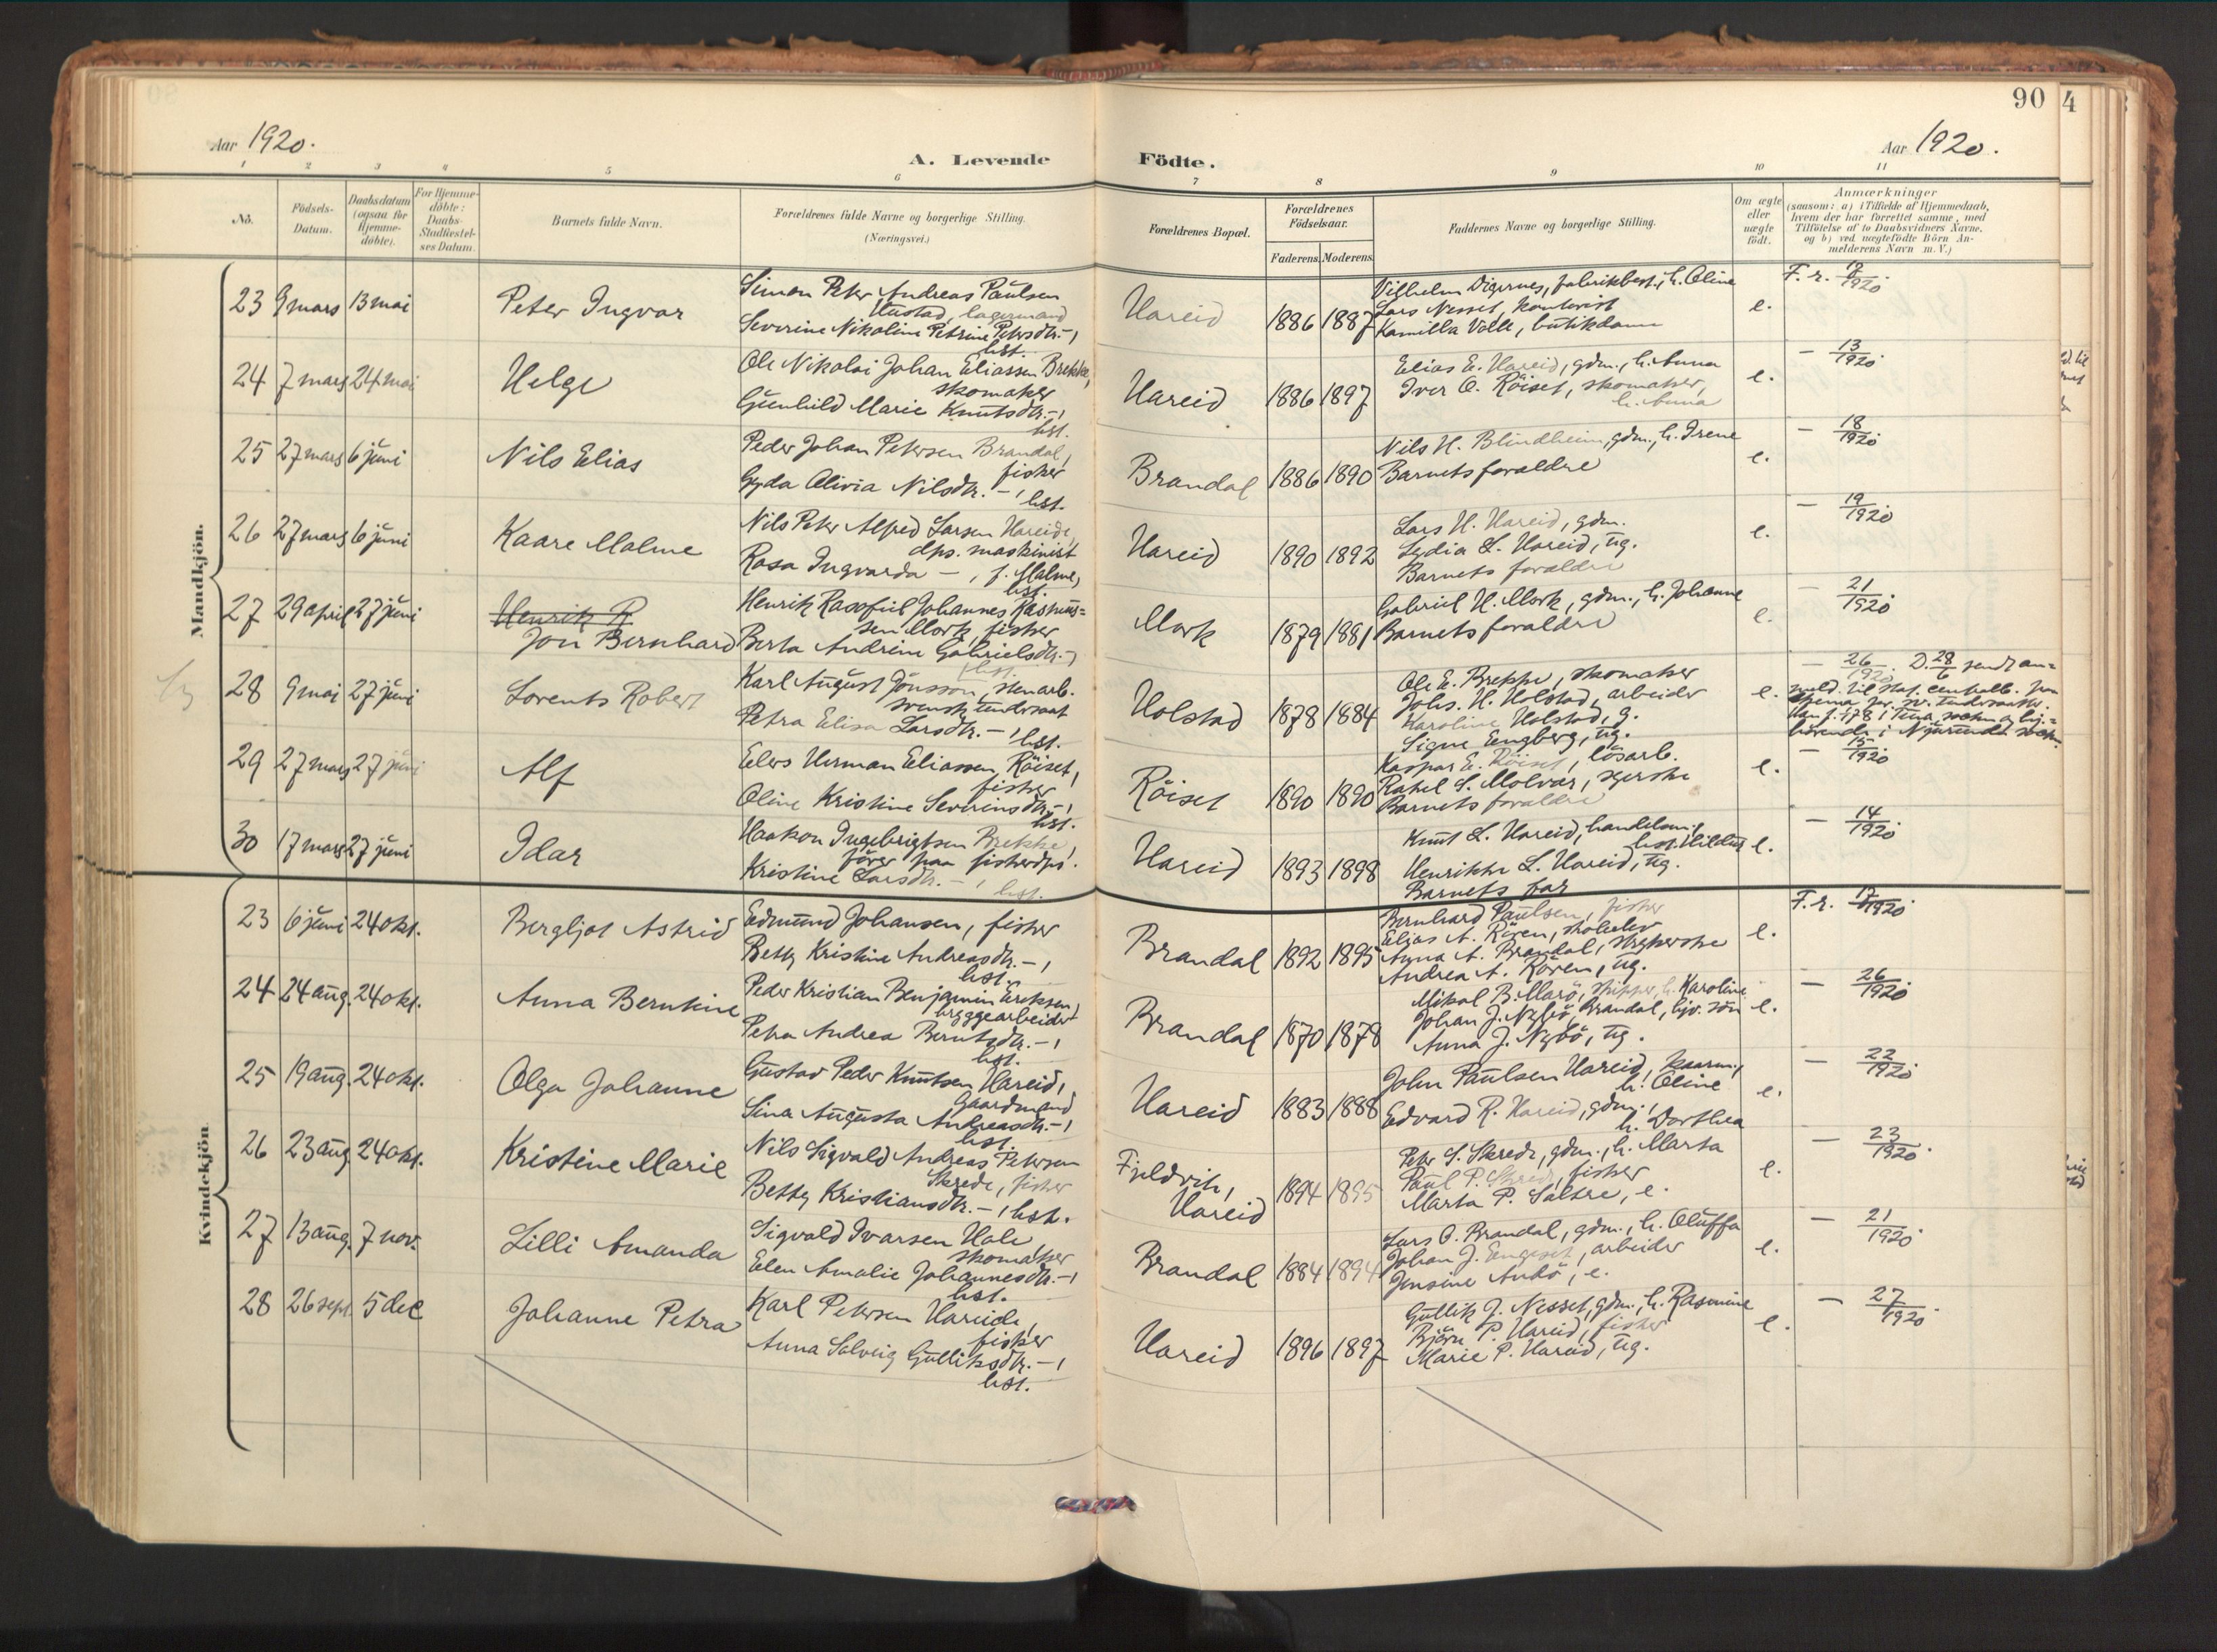 90
4
Aar 1920.
A. Levende
Födte.
Aar 1920.
1 2 3 4 5 6 7 8 9 10 11
No.
Födsels-
Datum.
Daabsdatum
(ogsaa for
Hjemme-
döbte).
For Hjemme-
döbte:
Daabs-
Stadfæstel-
ses Datum.
Barnets fulde Navn.
Forældrenes fulde Navne og borgerlige Stilling.
(Næringsvei.)
Forældrenes Bopæl.
Forældrenes
Födselsaar.
Faderens. Moderens.
Faddernes Navne og borgerlige Stilling.
Om ægte
eller
uægte
födt.
Anmærkninger
(saasom: a) i Tilfælde af Hjemmedaab,
hvem der har forrettet samme, med
Tilföielse af to Daabsvidners Navne,
og b) ved uægtefödte Börn An-
melderens Navn m. V.)
Mandkjön.
23 9 mars 13 mai
Peter Ingvar
Simon Peter Andreas Paulsen
lagermand
Severine Nikoline Petrine Petersdtr. -,
hst.
Hareid
1886 1887
Vilhelm Digernes, fabrikbest., h. Oline
Lars Nesset, kontorist
Kamilla Valle, butikdame
e.
F. r. 12/1920.
24 7 mars 24 mai
Helge
Ole Nikolai Johan Eliassen Brekke,
skomaker
Gunhild Marie Knutsdtr. -,
hst.
Hareid
1886 1897
Elias E. Hareid, gdm., h. Anna
Iver O. Röiset, skomaker,
h. Anna
e.
- 13/1920.
25 27 mars 6 juni
Nils Elias
Peder Johan Petersen Brandal,
fisker
Gyda Olivia Nilsdtr. -,
hst.
Brandal
1886 1890
Nils H. Blindheim, gdm., h. Irene
Barnets forældre
e.
- 18/1920.
26 27 mars 6 juni
Kaare Malme
Nils Peter Alfred Larsen Hareide,
dps. maskinist
Rosa Ingvarda -, f. Malme,
hst.
Hareid
1890 1892
Lars H. Hareid, gdm.
Lydia L. Hareid, ug.
Barnets forældre
e.
- 19/1920.
27 29 april 27 juni
Henrik R
Jon Bernhard
Henrik Rasofiel Johannes Rasmus=
sen Mork, fisker
Berta Andrine Gabrielsdtr. -,
hst.
Mork
1879 1881
Gabriel H. Mork, gdm., h. Johanne
Barnets forældre
e.
- 21/1920.
28 9 mai 27 juni
Lorents Robert
Karl August Jönsson, stenarb.
svensk undersaat
Petra Elisa Larsdtr. -,
hst.
Holstad
1878 1884
Ole E. Brekke, skomaker
Johs. H. Holstad, arbeider
Karoline Holstad, g.
Signe Engberg, ug.
e.
- 26/1920. D. 28/6 sendt an=
meld. til stat. centralb. paa
29 27 mars 27 juni
Alf
Elers Herman Eliassen Röiset,
fisker
Oline Kristine Severinsdtr. -,
hst.
Röiset
1890 1890
Kaspar E. Röiset, lösarb.
Rakel S. Molvær, syerske
Barnets forældre
e.
- 15/1920
30 17 mars 27 juni
Idar
Haakon Ingebrigtsen Brekke,
förer paa fiskerdps.
Kristine Larsdtr. -,
hst.
Hareid
1893 1898
Knut L. Hareid, handelsm.,
hst. Hildur
Henrikke L. Hareid, ug.
Barnets far
e.
- 14/1920.
Kvindekjön.
23 6 juni 24 okt.
Bergljot Astrid
Edmund Johansen, fisker
Betty Kristine Andreasdtr. -,
hst.
Brandal
1892 1895
Bernhard Paulsen, fisker
Elias A. Rören, skoleelev
Anna A. Brandal, strykerske
Andrea A. Rören, ug.
e.
F. r. 17/1920.
24 24 aug. 24 okt.
Anna Berntine
Peder Kristian Benjamin Eriksen,
bryggearbeider
Petra Andrea Berntsdtr. -,
hst.
Brandal
1870 1878
Mikal B. Marö, skipper, h. Karoline
Johan J. Nybö, Brandal, hjv. sön
Anna J. Nybö, ug.
e.
- 26/1920.
25 19 aug. 24 okt.
Olga Johanne
Gustav Peder Knutsen Hareid,
Gaardmand
Lina Augusta Andreasdtr. -,
hst.
Hareid
1883 1888
John Paulsen Hareid, kaarm.,
h. Oline
Edvard R. Hareid, gdm.,
h. Dorthea
e.
- 22/1920.
26 23 aug. 24 okt.
Kristine Marie
Nils Sigvald Andreas Petersen
Skrede, fisker
Betty Kristiansdtr. -, hst.
Fjeldvik,
Hareid
1894 1895
Peter S. Skrede, gdm., h. Marta
Paul P. Skrede, fisker
Marta P. Saltre, e.
e.
- 23/1920.
27 13 aug. 7 nov.
Lilli Amanda
Sigvald Ivarsen Hale,
skomaker
Elen Amalie Johannesdtr. -,
hst.
Brandal
1884 1894
Lars O. Brandal, gdm., h. Oluffa
Johan J. Engeset, arbeider
Jensine Aukö, e.
e.
- 21/1920.
28 26 sept. 5 dec
Johanne Petra
Karl Petersen Hareide,
fisker
Anna Solveig Gulliksdtr. -,
hst.
Hareid
1896 1897
Gullik J. Nesset, gdm., h. Rasmine
Björn P. Hareid, fisker
Marie P. Hareid, ug.
e.
- 27/1920.